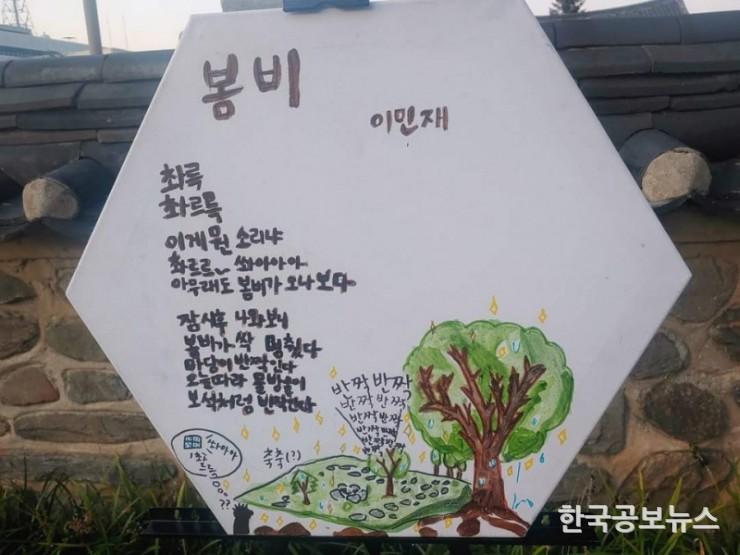 봄비
이민재
촤륵
촤르륵
이게 뭔 소리냐
촤르르~ 쏴아아아
아무래도 봄비가 오나 보다.
잠시후 나와보니
봄비가 싹 멈췄다
마당이 반짝인다
오늘따라 물방울이
보석처럼 반짝인다
반짝 반짝
반짝 반짝
반짝 반짝
반짝 반짝
쏴아아
축축(?)
??
한국공보뉴스